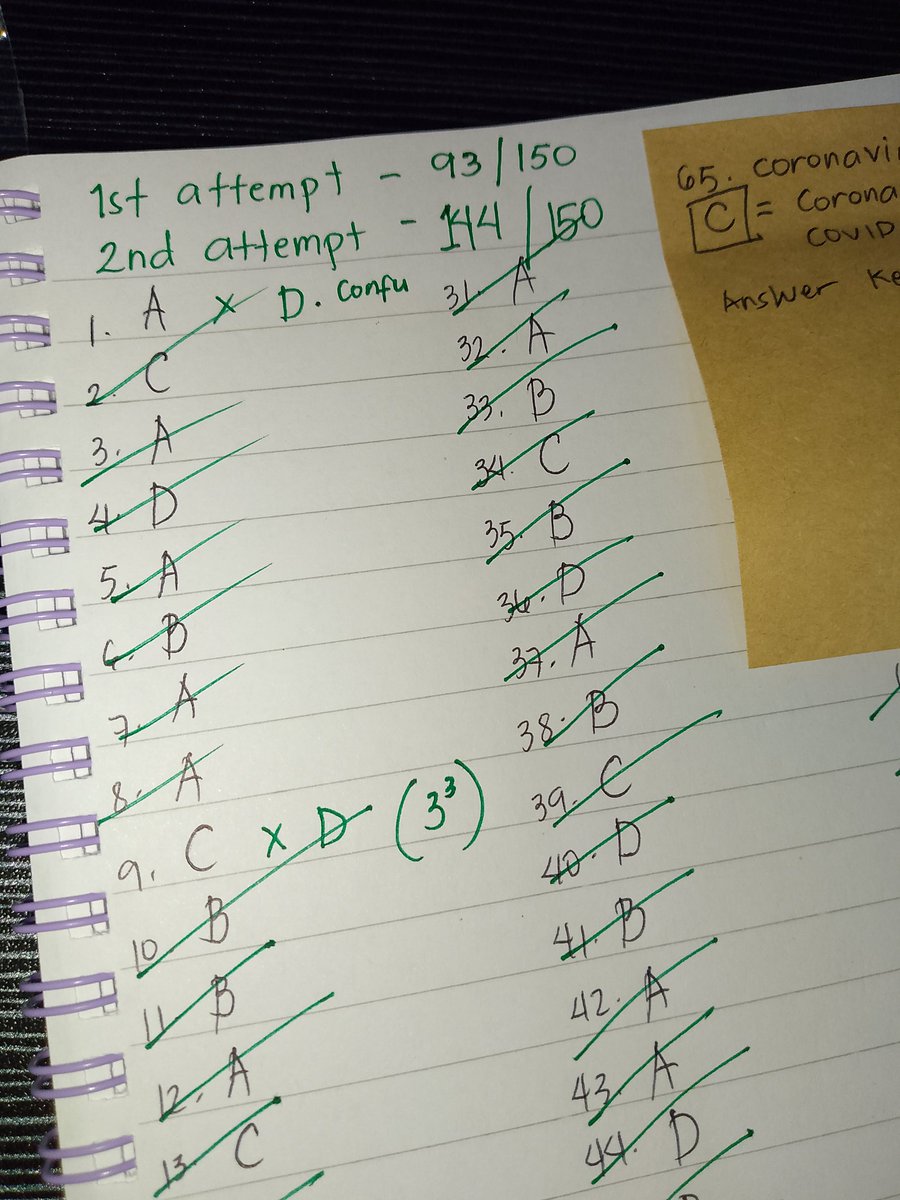 1st attempt - 93/150
2nd attempt - 144/150
1. A x D. Confu
2. C
3. A
4. D
5. A
6. B
7. A
8. A
9. C x D (3³)
10 B
11 B
12. A
13. C
31. A
32. A
33. B
34. C
35. B
36. D
37. A
38. B
39. C
40. D
41. B
42. A
43. A
44. D
65. coronavi
C = Corona
COVID
Answer Ke